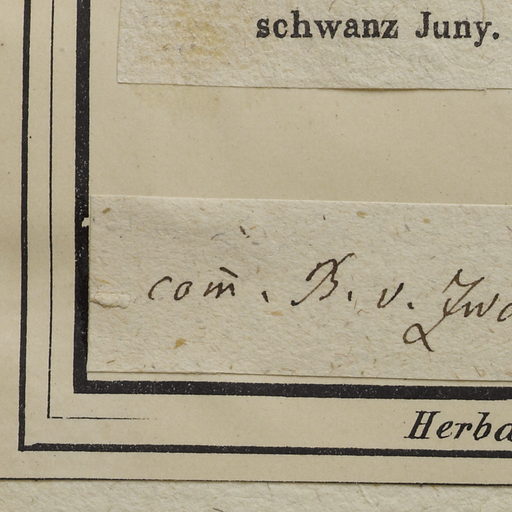 schwanz Juny.
com̄. B. v. Zwa
Herba